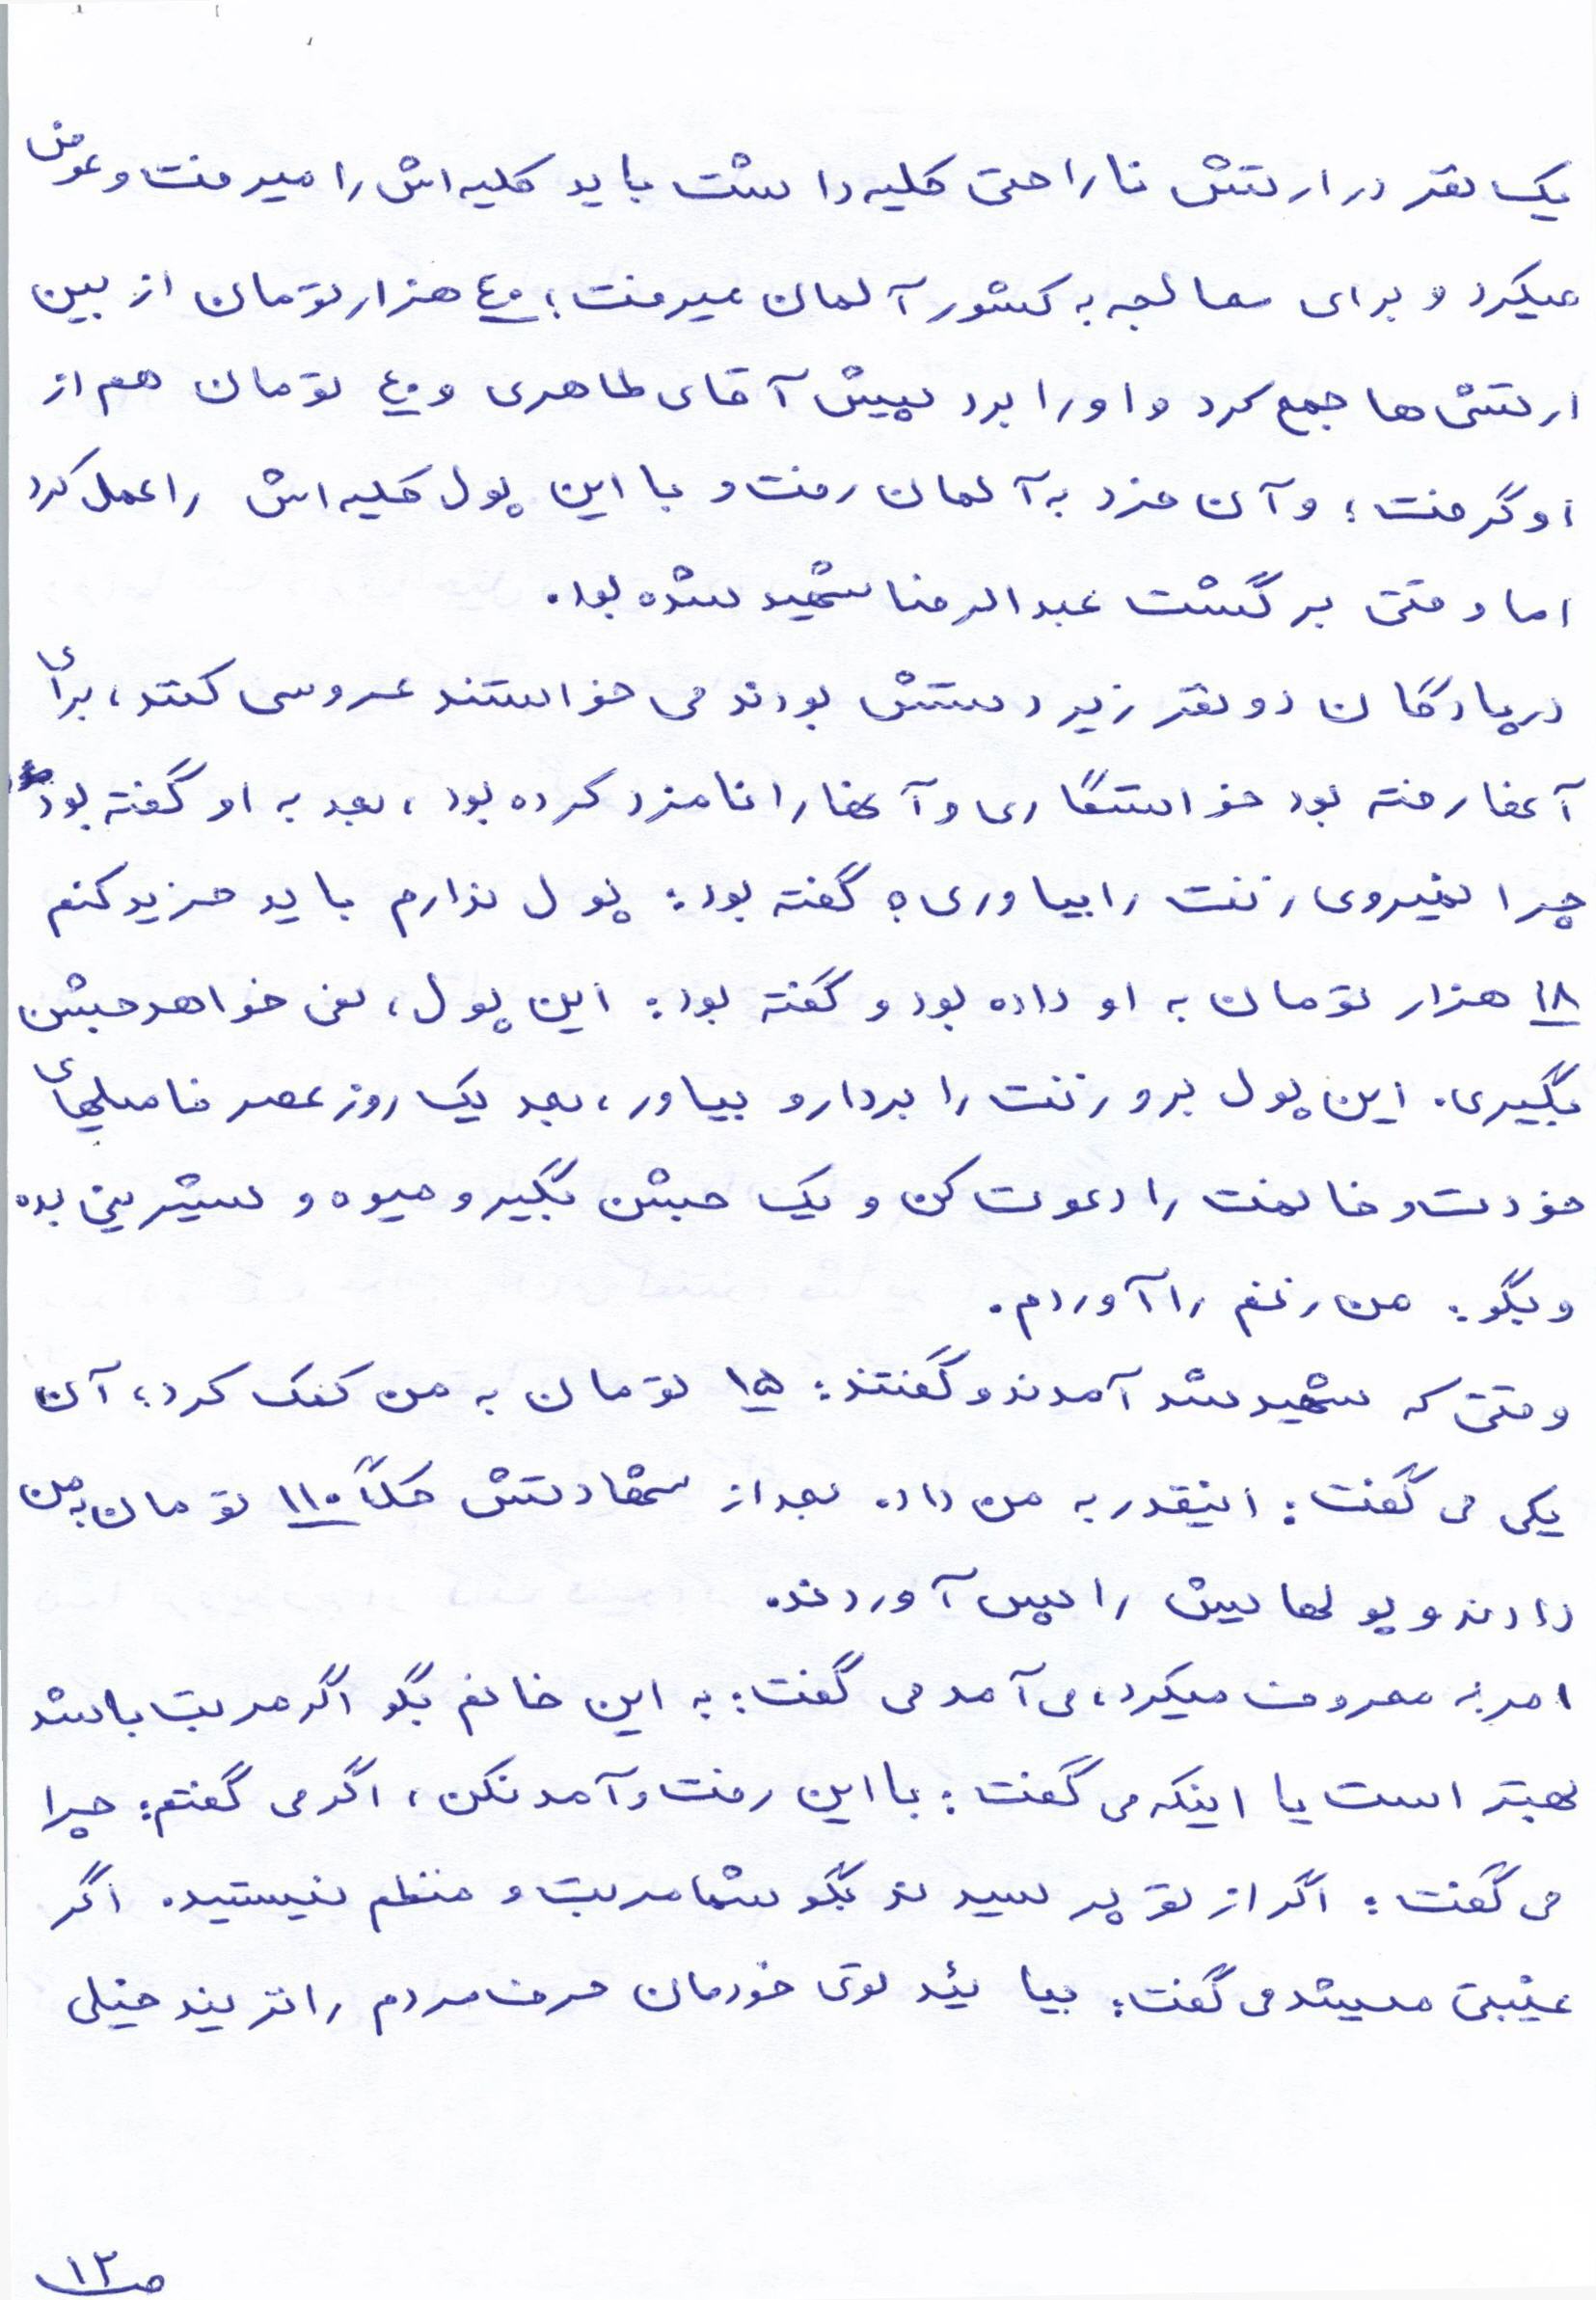 یک نفر در ارتش ناراحتی کلیه داشت باید کلیه‌اش را میرفت و عوض
میکرد و برای معالجه به کشور آلمان میرفت؛ ۴۰ هزار تومان از بین
ارتشی‌ها جمع کرد و او را برد پیش آقای طاهری و ۴۰ تومان هم از
او گرفت؛ و آن مرد به آلمان رفت و با این پول کلیه‌اش را عمل کرد
اما وقتی برگشت عبدالرضا شهید شده بود.
در پادگان دو نفر زیر دستش بودند می خواستند عروسی کنند، برای
آنها رفته بود خواستگاری و آنها را نامزد کرده بود، بعد به او گفته بود
چرا نمیروی زنت را بیاوری؟ گفته بود: پول ندارم باید خرید کنم
۱۸ هزار تومان به او داده بود و گفته بود: این پول، نمی خواهد جشن
بگیری. این پول برو زنت را بردار و بیاور، بعد یک روز عصر فامیلهای
خودت و خانمت را دعوت کن و یک جشن بگیر و میوه و شیرینی بده
و بگو: من زنم را آوردم.
وقتی که شهید شد آمدند و گفتند: ۱۵ تومان به من کمک کرد؛ آن
یکی می گفت: اینقدر به من داد. بعد از شهادتش کلاً ۱۱۰ تومان به من
دادند و پولهایش را پس آوردند.
امر به معروف میکرد، می آمد می گفت: به این خانم بگو اگر مرتب باشد
بهتر است یا اینکه می گفت: با این رفت و آمد نکن، اگر می گفتم: چرا
می گفت: اگر از تو پرسیدند بگو شما مرتب و منظم نیستید. اگر
غیبتی میشد می گفت: بیائید توی خودمان حرف مردم را نزنید خیلی
ص۱۲